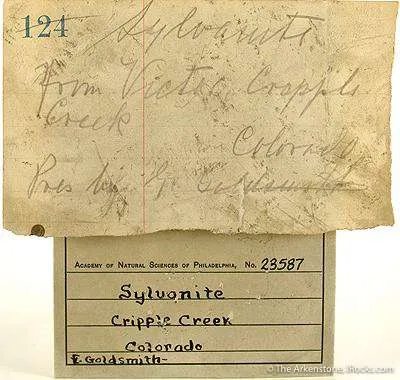 124
Sylvanite
From Victor Cropple
Creek
Colorado
Pres by E Goldsmith
ACADEMY OF NATURAL SCIENCES OF PHILADELPHIA, No. 23587
Sylvonite
Cripple Creek
Colorado
E. Goldsmith-
© The Arkenstone, iRocks.com